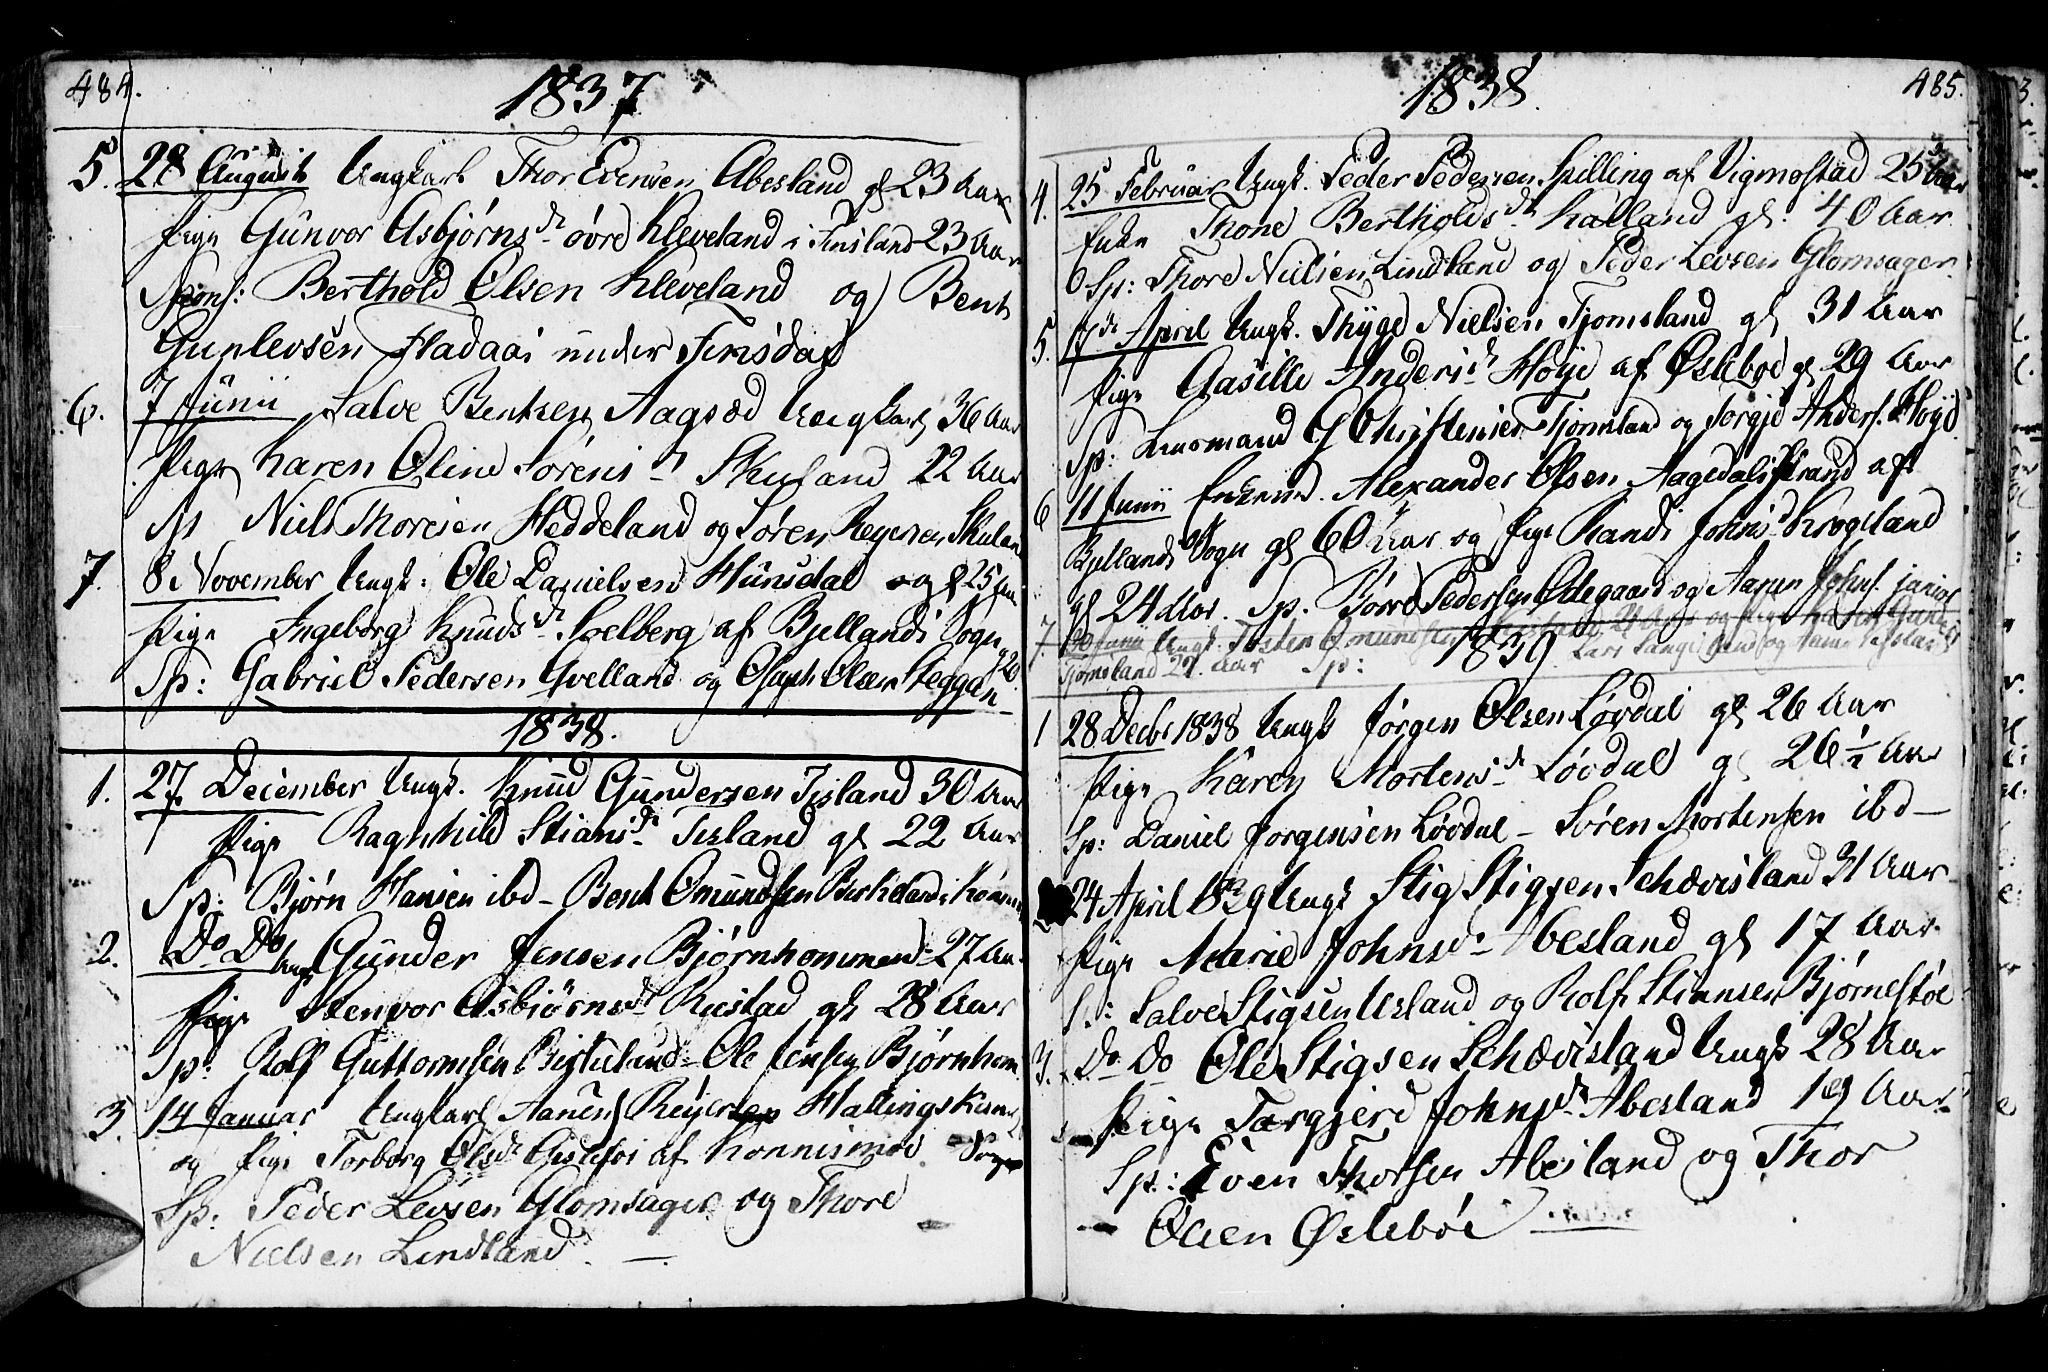 484.
1837
5. 28 August Ungkarl Thor Evensen Abesland gl 23 Aar
Pige Gunvor Asbjørnsdr øvre Kleveland i Finsland 23 Aar
Spons: Berthold Olsen Kleveland og Bent
Gunlevsen Fladaas under Finsdal
6. 7 Junii Salve Bentsen Aagsæd Ungkarl 36 Aar
Pige Karen Oline Sørensdr Skuland 22 Aar
Niels Thoresen Heddeland og Søren Reyersen Skuland
7. 8 November Ungk: Ole Danielsen Hunsdal og gl 25 Aar
Pige Ingeborg Knudsdr Solberg af Bjellands Sogn
Sp: Gabriel Pedersen Qvelland og Olsen Steggen
1838.
1. 27 December Ungk. Knud Gundersen Tisland 30 Aar
Pige Ragnhild Stiansdr Tisland gl 22 Aar
Sp: Bjørn Hansen ibd - Bent Omundsen Birkeland
2. Do Do Ungk Gunder Jensen Bjørnhommen 27 Aar
Pige Stenvor Asbjørnsdr Rustad gl 28 Aar
Sp: Rolf Guttormsen Birkeland - Ole Jensen Bjørnhom
3. 14 Januar Ungkarl Aanen Reyersen Hallingskier
og Pige Torborg Olsdr af Konnismoe Sogn
Sp: Peder Levsen Glomsager og Thore
Nielsen Lindland. —
1838.
485.
4. 25 Februar Ungk. Peder Pedersen Spilling af Vigmostad 25 Aar
Enke Thone Bertholdsdr Halland gl: 40 Aar
Sp: Thore Nielsen Lindland og Peder Levsen Glomsager.
5. 17de April Ungk. Thyge Nielsen Tjomsland gl 31 Aar
Pige Aasille Andersdr Høye af Øslebøe gl 29 Aar
Sp: Lensmand G Christensen Tjomsland og Torgje Anders. Høye
6 11 Junii Enkemd. Alexander Olsen Aagedalstrand af
Bjellands Sogn gl 60 Aar og Pige Randi Johnsdr Krogeland
gl 24 Aar. Sp. Børre Pedersen Ødegaard og Aanen Johns.
7. Junii Ungk. Torsten Omundsen
Tjomsland 27 Aar Sp:
1839.
1 28 Decbr 1838 Ungk Jørgen Olsen Løvdal gl 26 Aar
Pige Karen Mortensdr Løvdal gl 26 ½ Aar
Sp: Daniel Jørgensen Løvdal - Søren Mortensen ibd -
24 April 1839 Ungk Stig Stigsen Schævisland 31 Aar
Pige Marie Johnsdr Abesland gl 17 Aar.
S.: Salve Stigsen Usland og Rolf Stiansen Bjørnestøe
3. Do Do Ole Stigsen Schævisland Ungk 28 Aar
Pige Torgjerd Johnsdr Abesland 19 Aar.
Sp.: Even Thorsen Abesland og Thor
Olsen Øslebøe